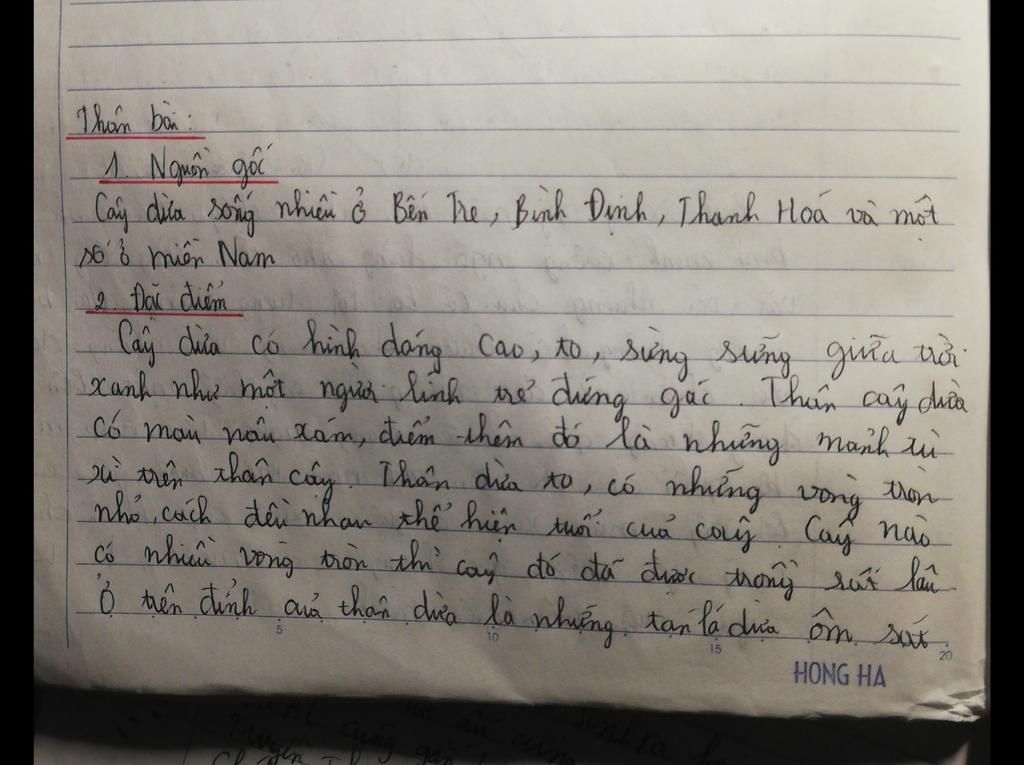 Thân bài:
1. Nguồn gốc
Cây dừa sống nhiều ở Bến Tre, Bình Định, Thanh Hoá và một
số ở miền Nam
2. Đặc điểm
Cây dừa có hình dáng cao, to, sừng sững giữa trời
xanh như một người lính trẻ đứng gác. Thân cây dừa
có màu nâu xám, điểm thêm đó là những mảnh xù
xì trên thân cây. Thân dừa to, có những vòng tròn
nhỏ, cách đều nhau thể hiện tuổi của cây. Cây nào
có nhiều vòng tròn thì cây đó đã được trồng rất lâu.
Ở trên đỉnh của thân dừa là những tán lá dừa ôm sát
5 10 15 20
HONG HA